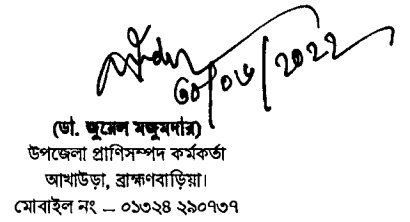 ৩০/০৬/২০২২
(ডা. জুয়েল মজুমদার)
উপজেলা প্রাণিসম্পদ কর্মকর্তা
আখাউড়া, ব্রাহ্মণবাড়িয়া।
মোবাইল নং – ০১৩২৪ ২৯০৭৩৭